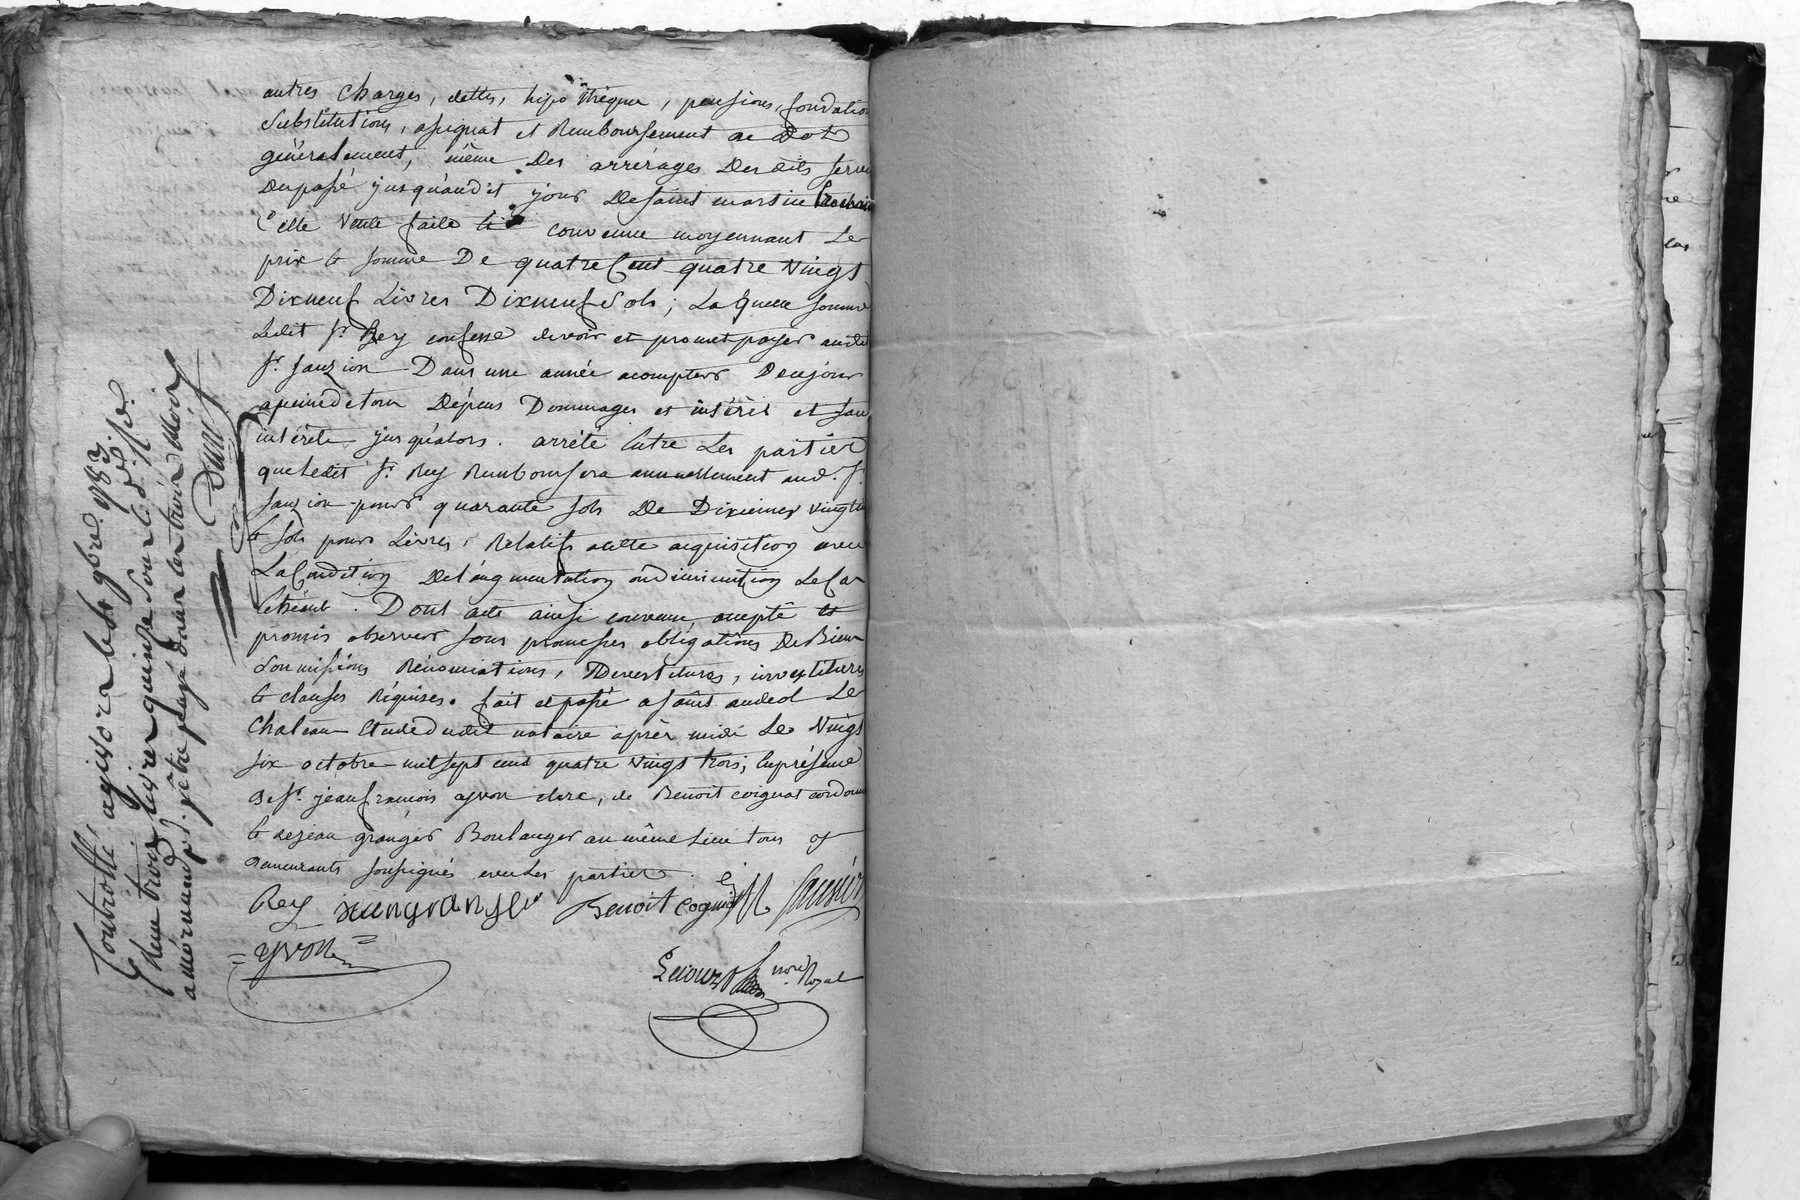 autres charges, dettes, hipothèques, pensions, fondation
Substitutions, assignat et Remboursement de Dot
généralement, même Des arrérages Des dits servis
Dupassé jusqu'audit jour De saint martin prochain
Cette vente faite & convenue moyennant Le
prix & somme De quatre Cent quatre vingt
Dixneuf Livres Dixneuf sols; Laquelle somme
Ledit sr. Rey confesse devoir et promet payer audit
sr. sauzion Dans une année acompter De cejour
apeine de tous Dépens Dommages et intérêt et sans
intérêts jusqu'alors. arrêté Entre Les parties
que Ledit sr. Rey Remboursera annuellement aud. sr.
sauzion pour quarante sols De Dixiemes vingtie
& sols pour Livres, Relatifs a cette acquisition avec
La Condition De l'augmentation ou diminution Le Cas
Echéant. Dont acte ainsi convenu accepté et
promis observer sous promesses obligations De Biens
Soumissions Rénonciations, Devestitures, investitures
& clauses Réquises. fait et passé a saint andeol Le
Chateau Etude dudit notaire après midi Le Vingt
six octobre mil sept cent quatre vingt trois; En présence
De sr. jean françois yvon clerc, de Benoit coignat cordonn
& de jean granger Boulanger au même Lieu tous y
demeurants soussignés avec Les parties.
Rey jean granger Benoit Cogniat
yvon
nore Royal
Controllé a givors le 9bre 1783.
Reçu trois livres quinze sous